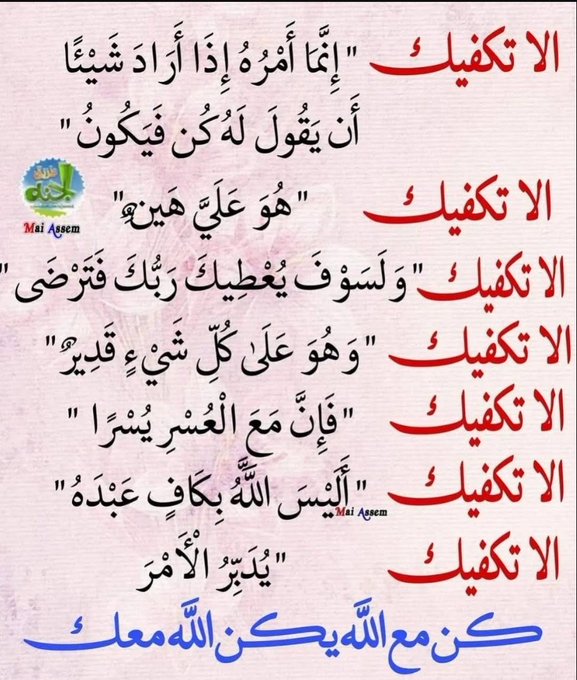 الا تكفيك "إِنَّمَا أَمْرُهُ إِذَا أَرَادَ شَيْئًا
أَن يَقُولَ لَهُ كُن فَيَكُونُ"
الا تكفيك "هُوَ عَلَيَّ هَينٌ"
Mai Assem
الا تكفيك "وَلَسَوْفَ يُعْطِيكَ رَبُّكَ فَتَرْضَى"
الا تكفيك "وَهُوَ عَلَىٰ كُلِّ شَيْءٍ قَدِيرٌ"
الا تكفيك "فَإِنَّ مَعَ الْعُسْرِ يُسْرًا"
الا تكفيك "أَلَيْسَ اللَّهُ بِكَافٍ عَبْدَهُ"
Mai Assem
الا تكفيك "يُدَبِّرُ الْأَمْرَ
كن مع الله يكن الله معك